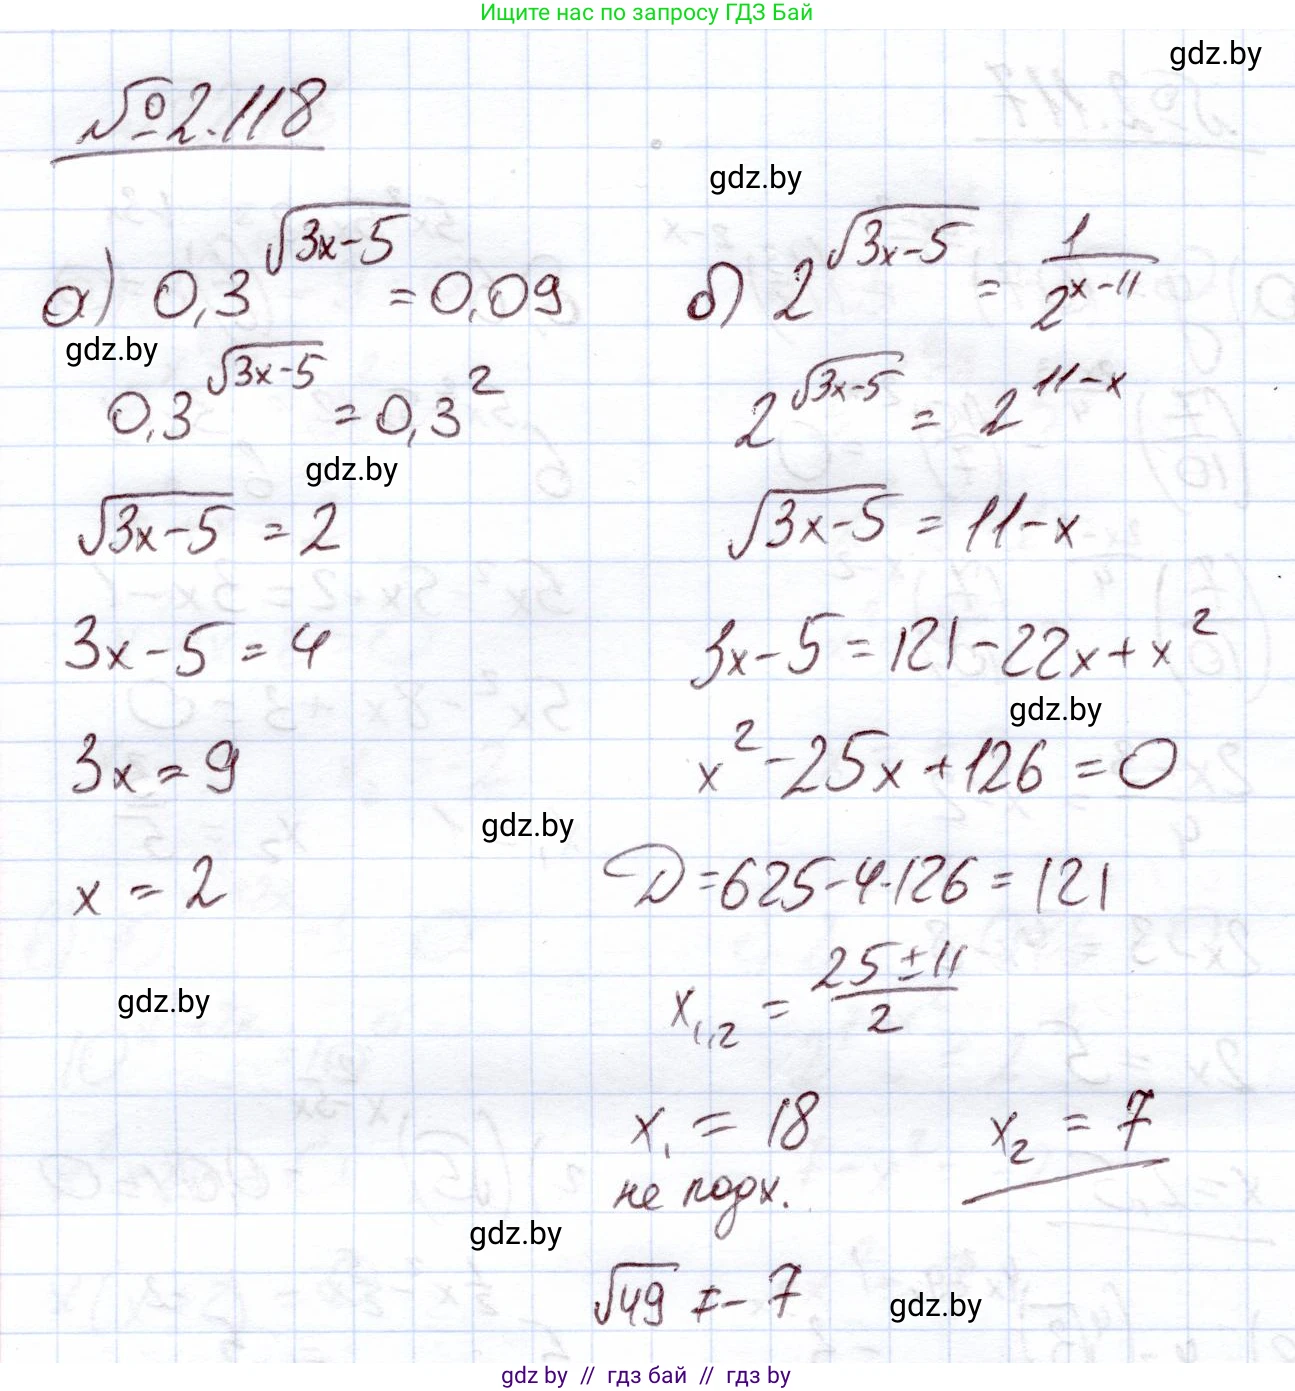 Ищите нас по запросу ГДЗ Бай
gdz.by
№2.118
gdz.by
а) 0,3^√(3x-5) = 0,09
б) 2^√(3x-5) = 1/2^(x-11)
gdz.by
0,3^√(3x-5) = 0,3^2
2^√(3x-5) = 2^(11-x)
gdz.by
√(3x-5) = 2
√(3x-5) = 11-x
3x-5 = 4
3x-5 = 121-22x+x²
gdz.by
3x = 9
x²-25x+126 = 0
gdz.by
x = 2
D = 625-4·126 = 121
gdz.by
x₁,₂ = (25±11)/2
x₁ = 18
x₂ = 7
не подх.
gdz.by
√49 ≠ -7
gdz.by
gdz by // гдз бай // гдз by